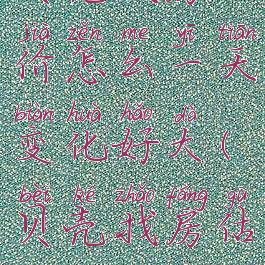 jià zěn me yī tiān
价怎么一天
biàn huà hǎo dà
变化好大(
bèi ké zhǎo fáng gū
贝壳找房估